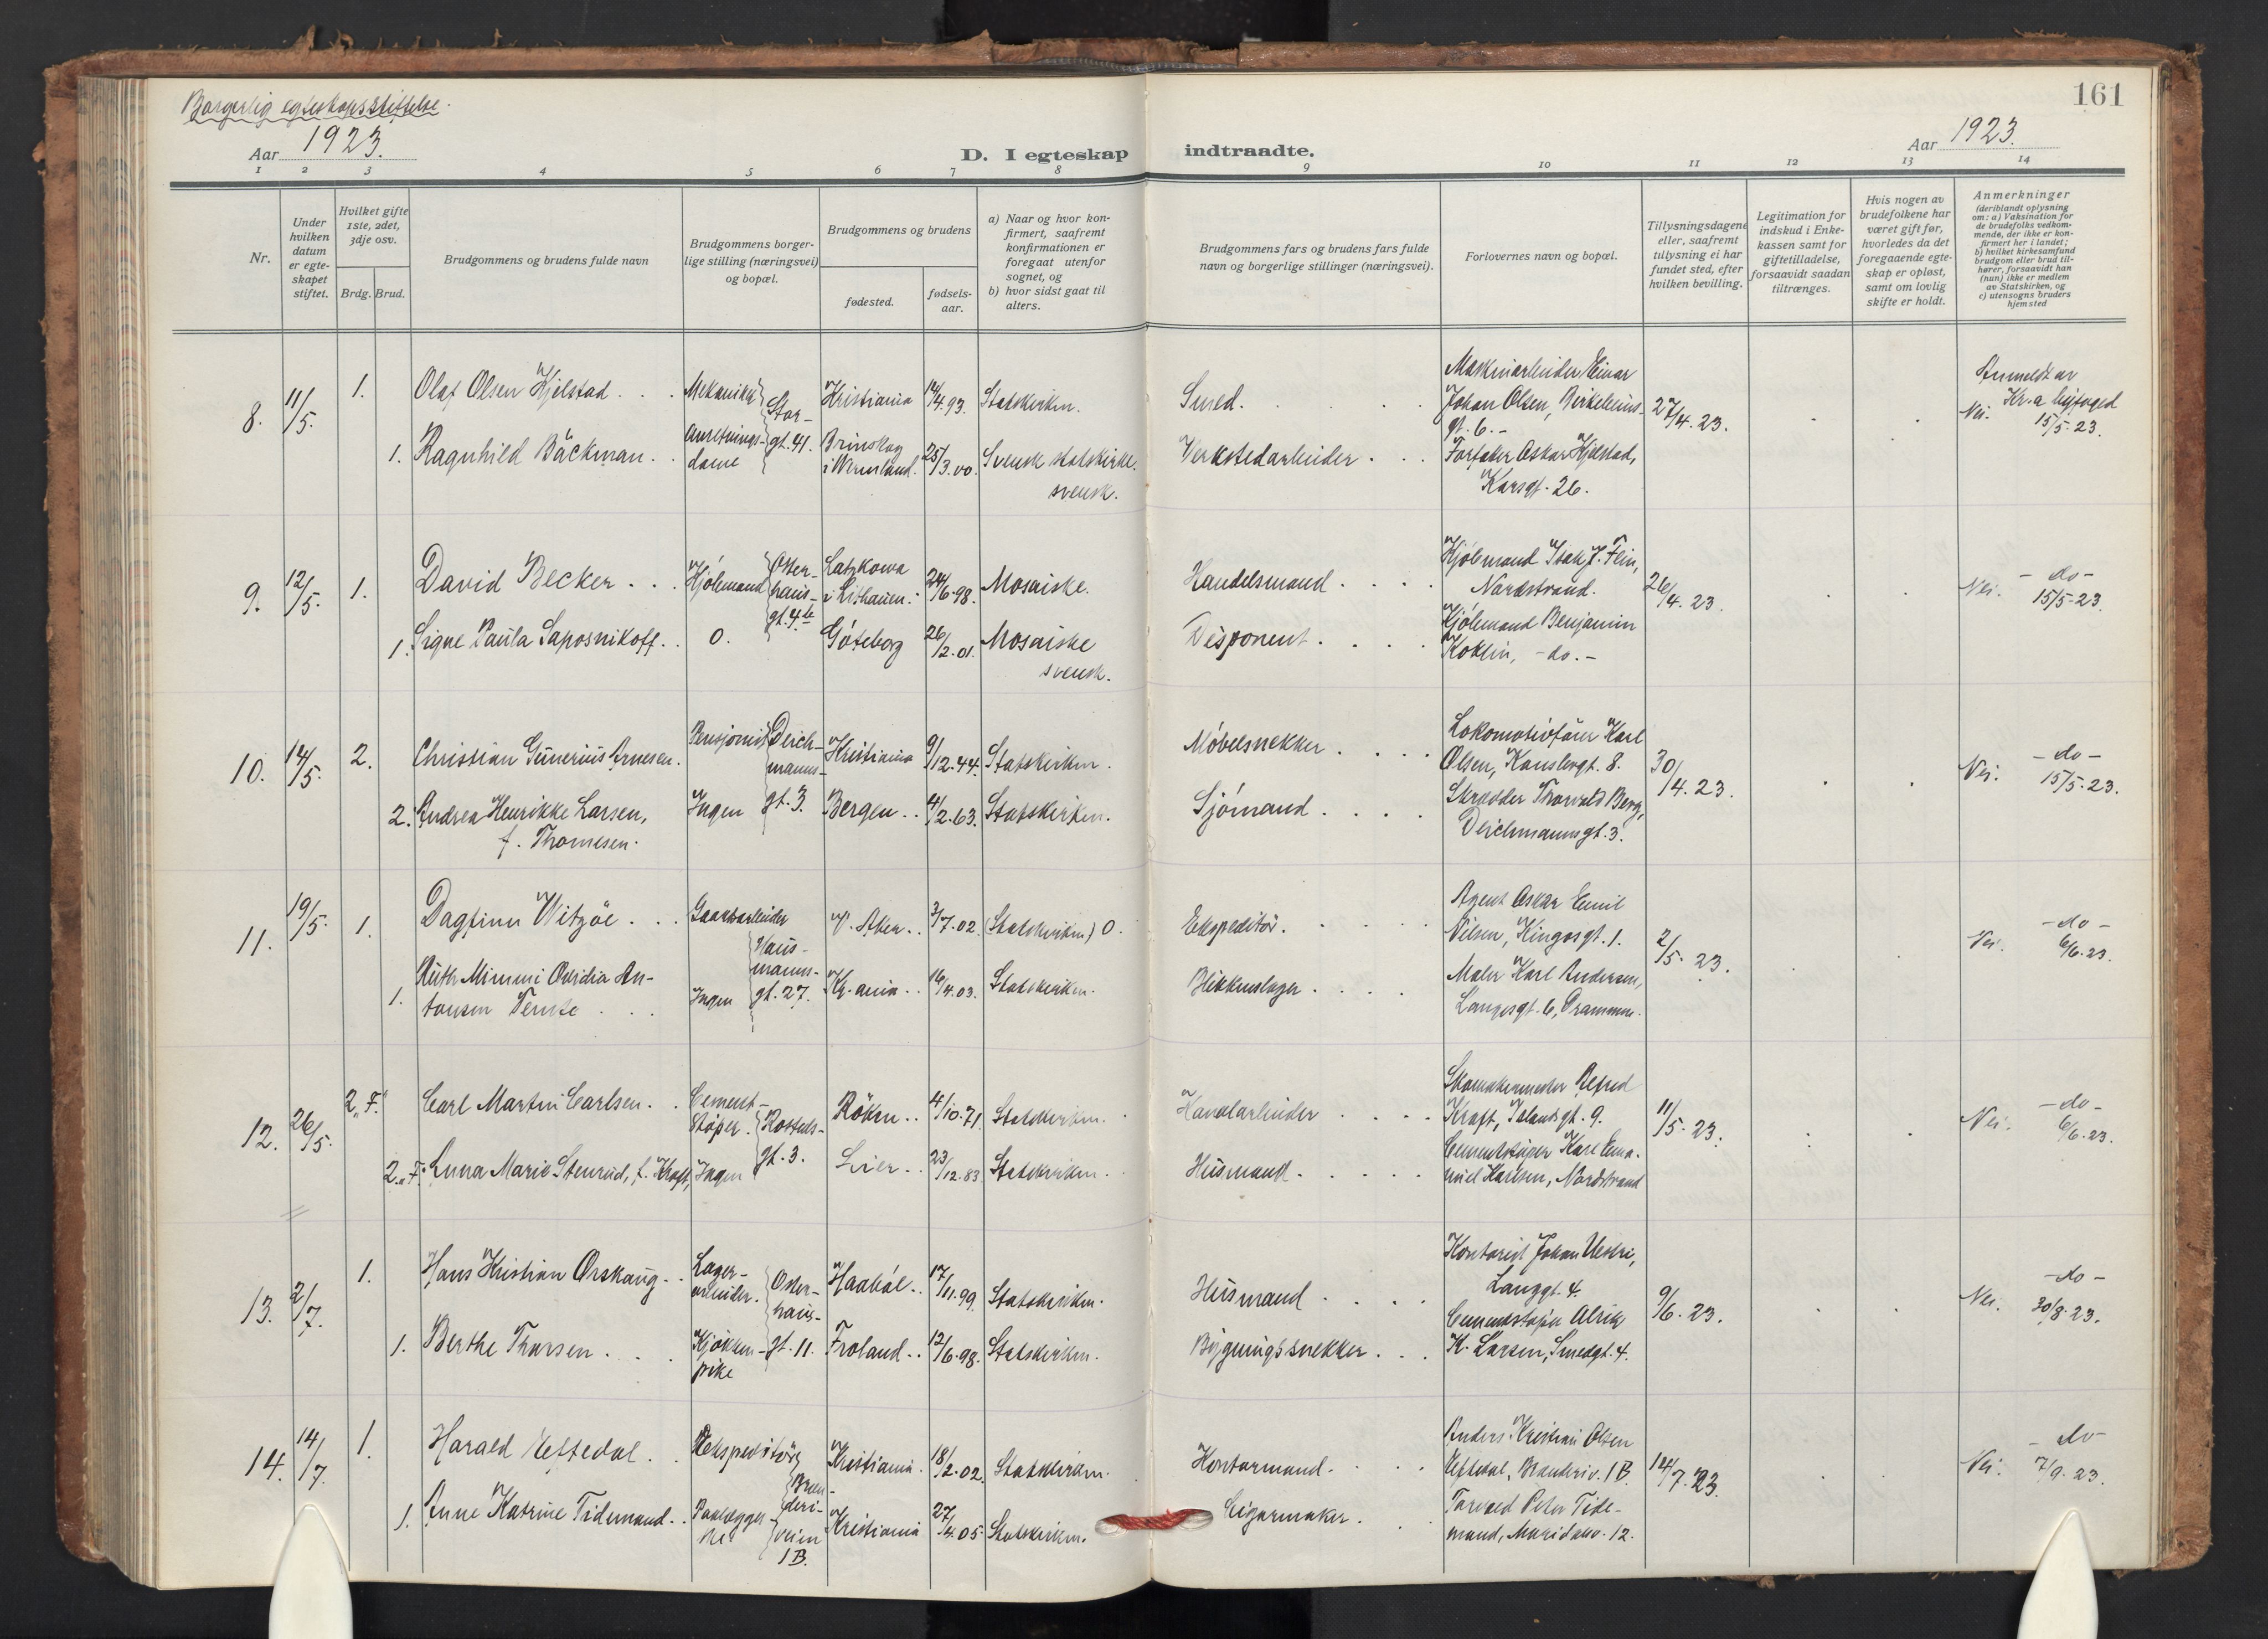 161
Borgerlig egteskapsstiftelse.
Aar 1923.
D. I egteskap indtraadte.
Aar 1923.
1 2 3 4 5 6 7 8 9 10 11 12 13 14
Nr.
Under hvilken datum er egteskapet stiftet.
Hvilket gifte 1ste, 2det, 3dje osv.
Brdg. Brud.
Brudgommens og brudens fulde navn
Brudgommens borgerlige stilling (næringsvei) og bopæl.
Brudgommens og brudens
fødested.
fødselsaar.
a) Naar og hvor konfirmert, saafremt konfirmationen er foregaat utenfor sognet, og
b) hvor sidst gaat til alters.
Brudgommens fars og brudens fars fulde navn og borgerlige stillinger (næringsvei).
Forlovernes navn og bopæl.
Tillysningsdagene eller, saafremt tillysning ei har fundet sted, efter hvilken bevilling.
Legitimation for indskud i Enkekassen samt for giftetilladelse, forsaavidt saadan tiltrænges.
Hvis nogen av brudefolkene har været gift før, hvorledes da det foregaaende egteskap er opløst, samt om lovlig skifte er holdt.
Anmerkninger
(deriblandt oplysning om: a) Vaksination for de brudefolks vedkommende, der ikke er konfirmert her i landet;
b) hvilket kirkesamfund brudgom eller brud tilhører, forsaavidt han (hun) ikke er medlem av Statskirken, og
c) utensogns bruders hjemsted
8. 11/5. 1. Olaf Olsen Hjelstad . . . Mekaniker Storgt. 41. Kristiania 14/4.93. Statskirken. Smed. Maskinarbeider Einar Johan Olsen, Birkeleiusgt. 6. - 27/4.23. Nei. Anmeldt av Kr.a byfoged 15/5-23.
1. Ragnhild Bäckman . . Anretningsdame Brinskog i Wermland. 25/3.00. Svensk statskirke. svensk. Verkstedarbeider . . . Oskar Hjelstad, Karsgt. 26.
9. 12/5. 1. David Becker . . . Kjøbmand Osterhausgt. 4 Latzkowa i Lithauen. 24/6.98. Mosaiske. Handelsmand . . . . Kjøbmand Isak J. Flein, Nordstrand. 26/4.23. Nei. -do- 15/5-23.
1. Signe Paula Saposnikoff . . 0. Göteborg 26/2.01. Mosaiske svensk. Disponent . . . . Kjøbmand Benjamin Koklin, -do.-
10. 14/5. 2. Christian Gunerius Arnesen. Pensjonist Deichmannsgt. 3. Kristiania 9/12.44. Statskirken. Møbelsnekker . . . . Lokomotivfører Karl Olsen, Kanslergt. 8. 30/4.23. Nei. -do- 15/5-23.
2. Andrea Henrikke Larsen, f. Thomesen. Ingen Bergen . . 4/2.63. Statskirken. Sjømand . . . . Skrædder Thorvald Berg, Deichmannsgt. 3.
11. 19/5. 1. Dagfinn Witzøe . . . Gaardsarbeider Hausmannsgt. 27. V. Aker . . 3/7.02. (Statskirken) 0. Ekspeditør. Agent Oskar Emil Nilsen, Kingosgt. 1. 2/5.23. Nei. -do- 6/6.23.
1. Ruth Mimmi Ovidia Antonsen . . . Ingen Kr.ania . . 16/4.03. Statskirken. Blikkenslager . . . . Maler Karl Andersen, Langesgt. 6, Drammen.
12. 26/5. 2. "F." Carl Martin Carlsen . . Cementstøper. Rostedsgt. 3. Røken . . 4/10.71. Statskirken. Havnearbeider . . . . Skomakermester Alfred Kraft, Islandsgt. 9. 11/5.23. Nei. -do- 6/6.23.
2. "F." Anna Marie Stenrud, f. Kraft, Ingen Lier . . 23/12.83. Statskirken. Husmand . . . . . Cementstøper Karl Emanuel Karlsen, Nordstrand
13. 2/7. 1. Hans Kristian Orskaug . . Lagerarbeider. Osterhausgt. 11. Haabøl . . 17/11.99. Statskirken. Husmand . . . . Kontorist Johan Langgt. 4. 9/6.23. Nei. -do- 30/8.23.
1. Berthe Thorsen . . . Kjøkkenpike Froland . . 12/6.98. Statskirken. Bygningssnekker . . . Cementstøper Alrik K. Larsen, Smedgt. 4.
14. 14/7. 1. Harald Eftedal . . Ekspeditør Brænderiveien 1 B. Kristiania. 18/2.02. Statskirken. Kontormand . . . Anders Kristian Olsen Eftedal, Brænderiv. 1 B. 14/7.23. Nei. -do- 7/9.23.
1. Anne Katrine Tidemand . . Paalæggerske Kristiania 27/4.05. Statskirken. Cigarmaker . . . Torvald Peter Tidemand, Maridalsv. 12.